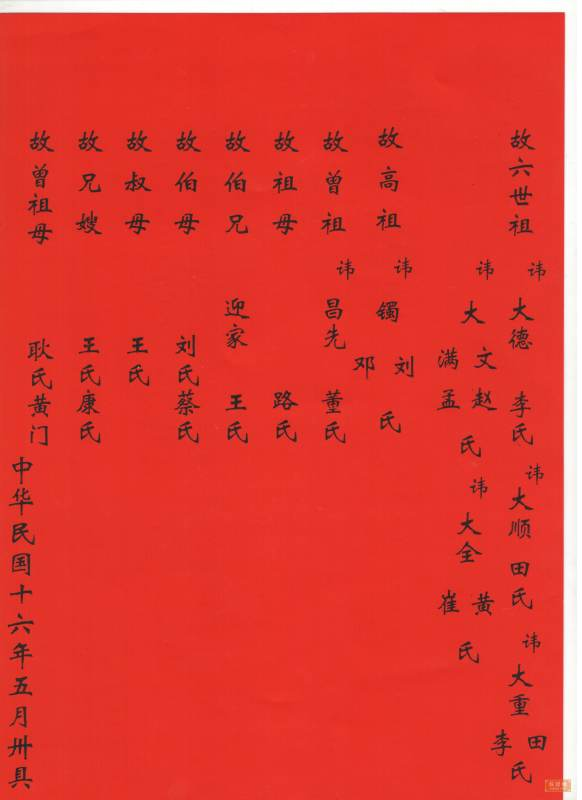 故六世祖 讳大德 李氏 讳大顺 田氏 讳大重 田李氏
讳大文满 赵孟氏 讳大全 黄崔氏
故高祖 讳镯 刘邓氏
故曾祖 讳昌先 董氏
故祖母 路氏
故伯兄 迎家 王氏
故伯母 刘氏蔡氏
故叔母 王氏
故兄嫂 王氏康氏
故曾祖母 耿氏黄门
中华民国十六年五月卅具